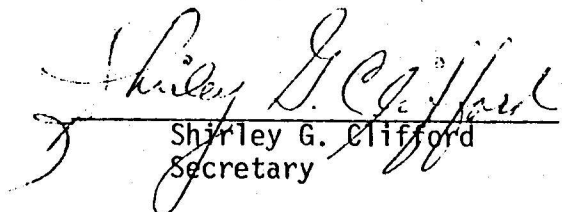 Shirley G. Clifford
Shirley G. Clifford
Secretary